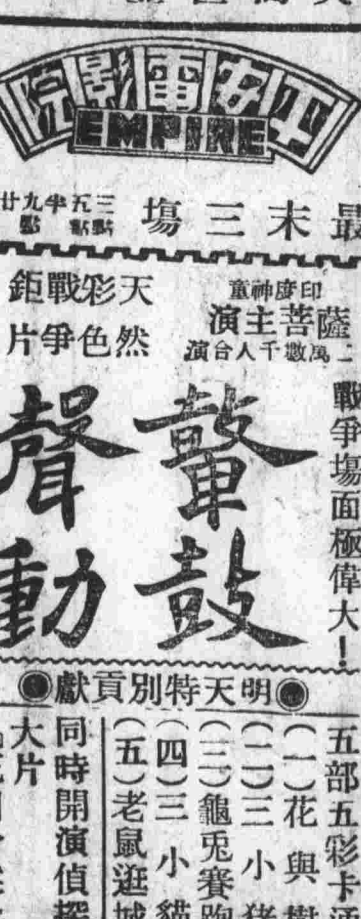 平安電影院
EMPIRE
最末三塲
三點 五點半 九點 廿
戰爭塲面極偉大！
印度神童
薩菩主演
二萬數千人合演
天然
彩色
戰爭
鉅片
鼙鼓
聲動
明天特別貢獻
五部五彩卡
（一）花與樹
（二）三小豬
（三）龜兎賽跑
（四）三小貓
（五）老鼠逛城
同時開演偵探
大片